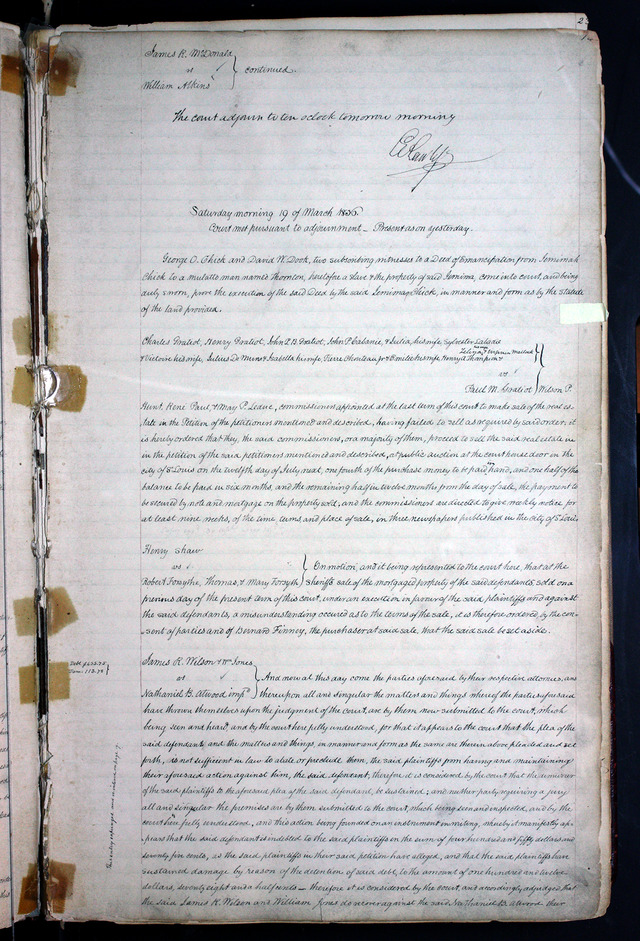 James R. McDonald
vs } continued.
William Atkins
The court adjourn to ten o'clock tomorrow morning
Saturday morning 19 of March 1836.
Court met pursuant to adjournment – Present as on yesterday.
George O. Chick and David W. Dock, two subscribing witnesses to a Deed of Emancipation from Jemimah
Chick to a mulatto man named Thornton, heretofore a slave & the property of said Jemima, come into court, and being
duly sworn, prove the execution of the said Deed by the said Jemimah Chick, in manner and form as by the statute
of the land provided.
Charles Gratiot, Henry Gratiot, John P. B. Gratiot, John P. Cabanie, & Julia, his wife, Sylvester Labadie
& Victoire his wife, Julius De Mun & Isabella his wife, Pierre Chouteau Jr & Emilie his wife, Henry &
vs
Paul M. Gratiot Wilson P.
Hunt, Rene Paul, & May P. Leduc, commissioners appointed at the last term of this court to make sale of the real es-
tate in the Petition of the petitioners mentioned and described, having failed to sell as required by said order; it
is hereby ordered that they, the said commissioners, or a majority of them, proceed to sell the said real estate in
in the petition of the said petitioners mentioned and described, at public auction at the courthouse door in the
city of St Louis on the twelfth day of July next, one fourth of the purchase money to be paid in hand, and one half of the
balance to be paid in six months, and the remaining half in twelve months from the day of sale, the payment to
be secured by note and mortgage on the property sold, and the commissioners are directed to give weekly notice for
at least nine weeks, of the time, terms and place of sale, in three newspapers published in the city of St Louis
Henry Shaw
vs } On motion, and it being represented to the court here, that at the
Robert Forsythe, Thomas, & Mary Forsyth Sheriffs sale of the mortgaged property of the said defendants, sold on a
previous day of the present term of this court, under an execution in favor of the said plaintiffs and against
the said defendants, a misunderstanding occured as to the terms of the sale, it is therefore ordered, by the con-
sent of parties and of Bernard Finney, the purchaser at said sale, that the said sale be set aside.
Debt $452.75
Dam: 112.78
James R. Wilson & Wm Jones
vs } And now at this day come the parties aforesaid by their respective attornies, and
Nathaniel B. Atwood impd thereupon all and singular the matters and things whereof the parties aforesaid
have thrown themselves upon the judgment of the court, are by them now submitted to the court, which
being seen and heard, and by the court here fully understood, for that it appears to the court that the plea of the
said defendants, and the matters and things, in manner and form as the same are therein above pleaded and set
forth, is not sufficient in law to abate or preclude them, the said plaintiffs from having and maintaining
their aforesaid action against him, the said defendant; therefore it is considered by the court that the demurrer
of the said plaintiffs to the aforesaid plea of the said defendant, be sustained; and neither party requiring a jury
all and singular the premises are by them submitted to the court which being seen and inspected, and by the
court here fully understood, and this action being founded on an instrument in writing, whereby it manifestly ap-
pears that the said defendant is indebted to the said plaintiffs in the sum of four hundred and fifty dollars and
seventy five cents, as the said plaintiffs in their said petition have alleged, and that the said plaintiffs have
sustained damage by reason of the detention of said debt, to the amount of one hundred and twelve
dollars, seventy eight and a half cents – therefore it is considered by the court, and accordingly adjudged that
the said James R. Wilson and William Jones do recover against the said Nathaniel B. Atwood their